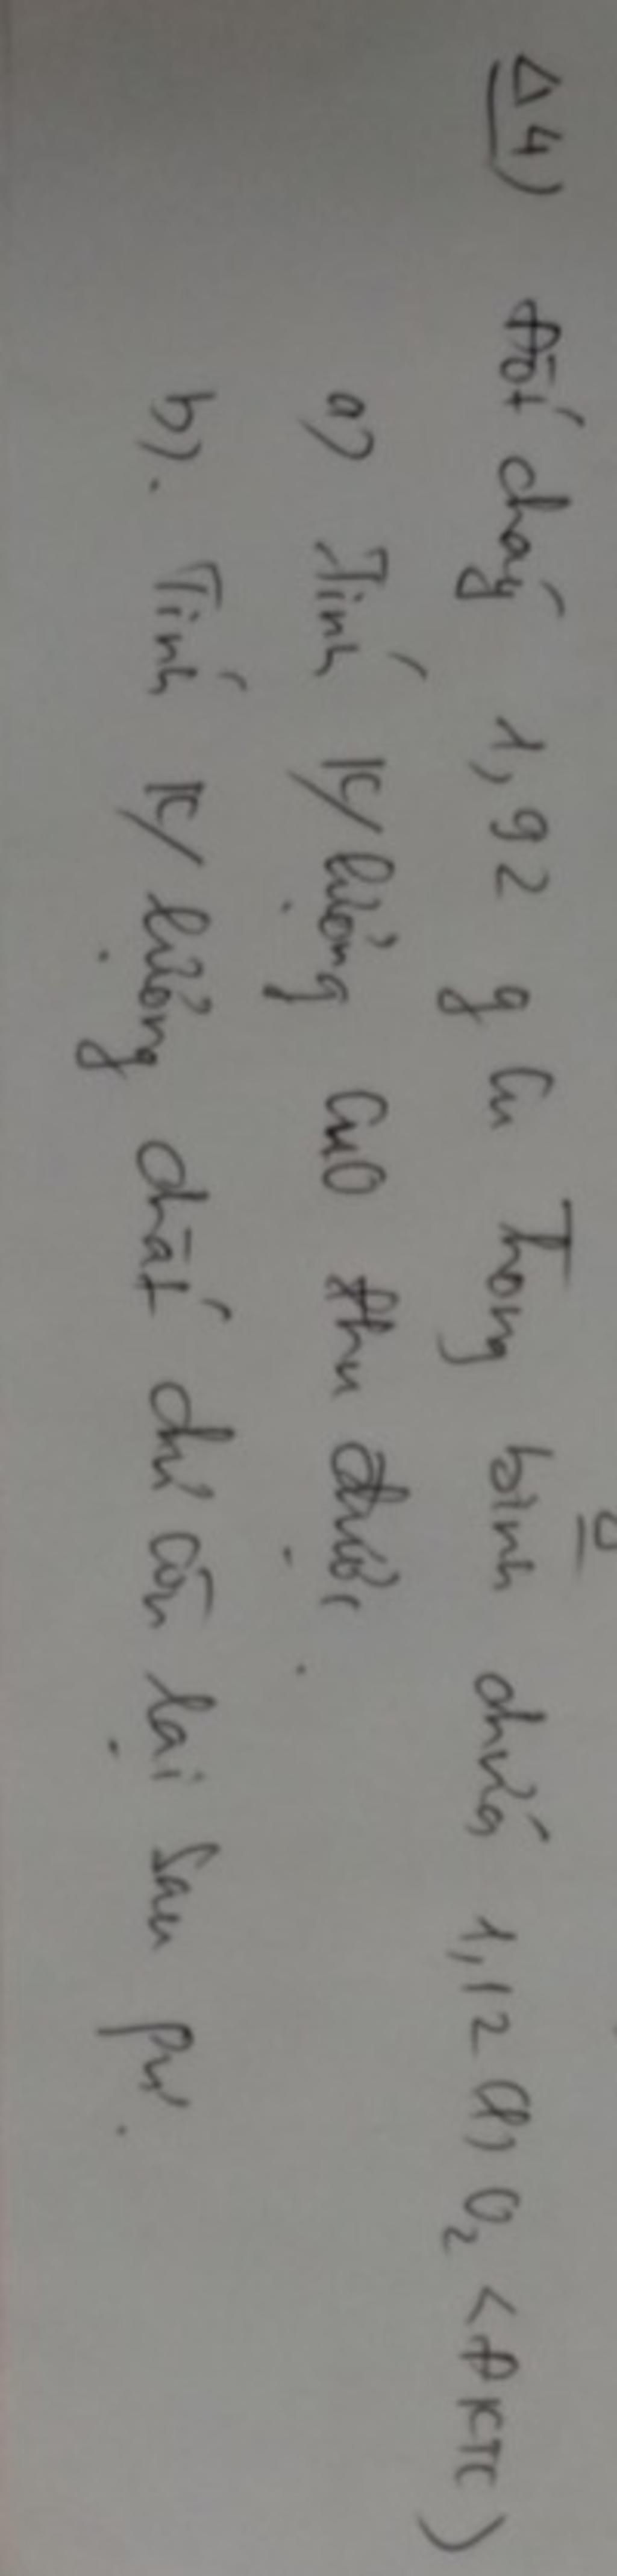 Δ4) Đốt cháy 1,92 g Cu Trong bình chứa 1,12 (l) O₂ <ĐKTC)
a) Tính k/lượng CuO thu được.
b). Tính k/lượng chất dư còn lại sau pư.